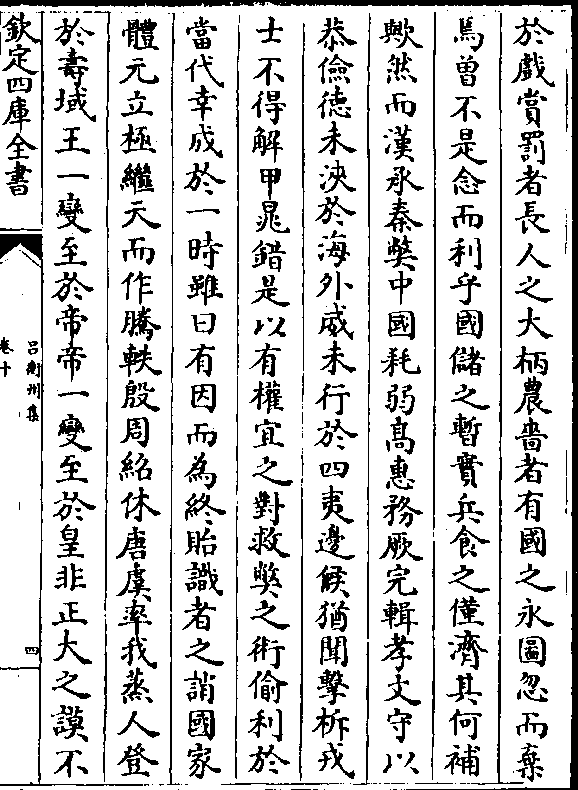 於戲賞罰者長人之大柄農嗇者有國之永圖忽而棄
焉曾不是念而利乎國儲之暫實兵食之僅濟其何補
歟然而漢承秦弊中國耗弱髙惠務厥完輯孝文守以
恭儉徳未泱於海外威未行於四夷邊候猶聞擊柝戎
士不得解甲晁錯是以有權宜之對救弊之術偷利於
當代幸成於一時雖曰有因而為終貽識者之誚國家
體元立極繼天而作騰軼殷周紹休唐虞率我蒸人登
於壽域王一變至於帝帝一變至於皇非正大之謨不
欽定四庫全書
呂衡州集
卷十
四